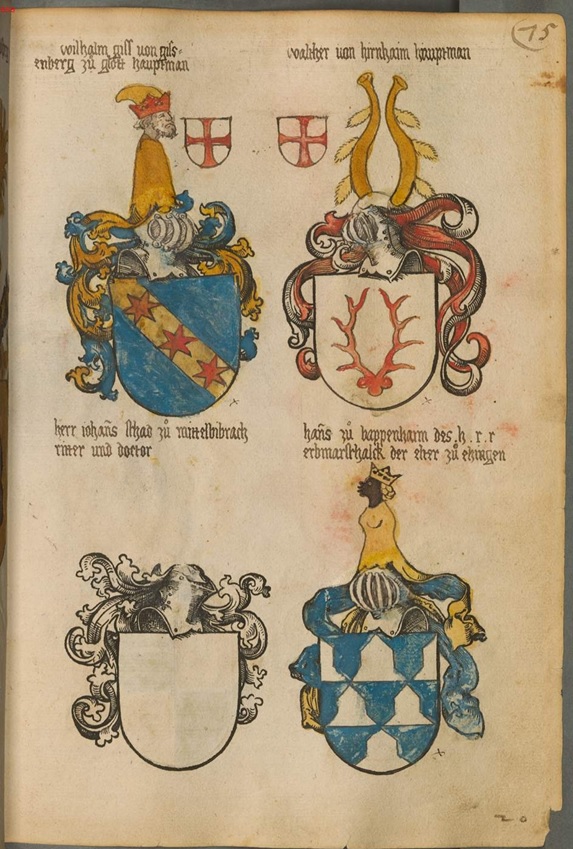 75
wilhalm giss von giss-
enberg zů glött hauptman
walther von hirnhaim hauptman
herr iohañs schad zů mittelbibrach
ritter und doctor
hañs zů bappenhaim des . h . r . r
erbmarschalck der elter zů